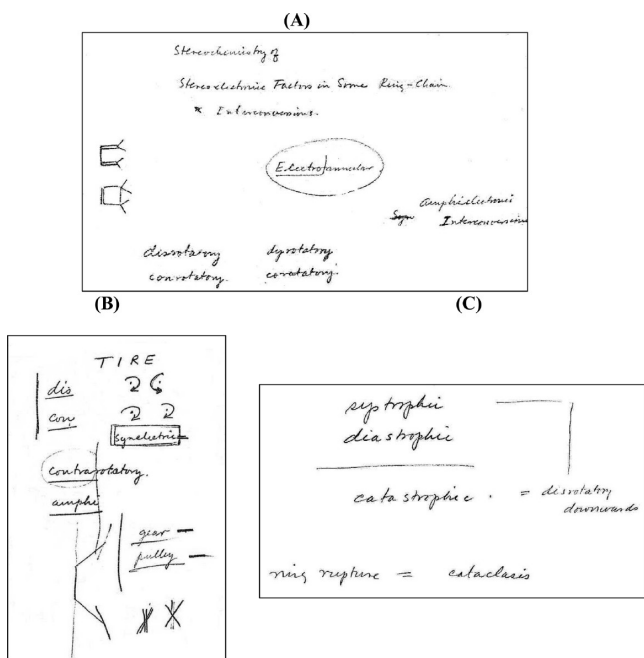 (A)
Stereochemistry of
Stereoelectronic Factors in Some Ring-Chain
Interconversions.
Electro
Amphielectronic
Interconversions
disrotatory dyrotatory
conrotatory. corotatory.
(B) (C)
TIRE
dis
con
synelectric
contrarotatory.
amphi
gear
pulley
systrophic
diastrophic
catastrophic. = disrotatory
downwards
ring rupture = cataclasis